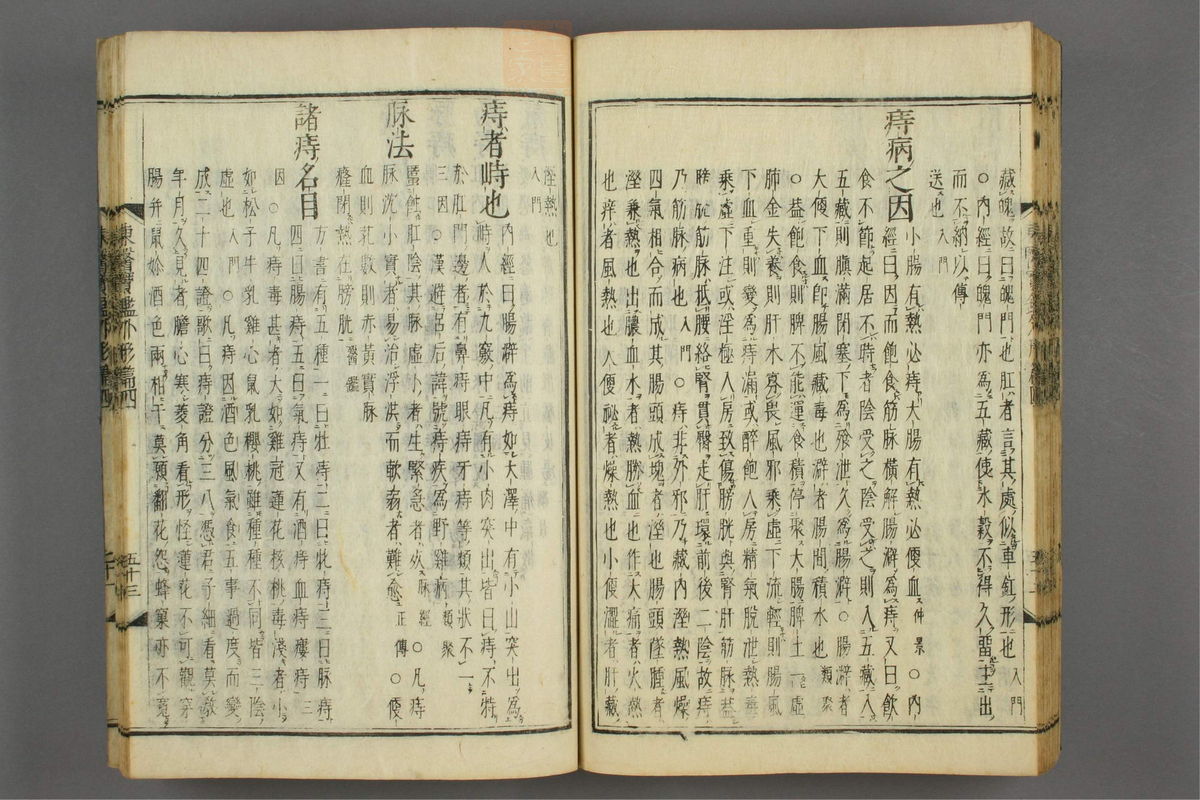 藏魄故曰魄門也肛者言其處似車釭形也入門
○內經曰魄門亦爲五藏使水穀不得久留主出
而不納以傳
送也入門
痔病之因小腸有熱必痔大腸有熱必便血仲景○內
經曰因而飽食筋脉橫解腸澼爲痔又曰飮
食不節起居不時者陰受之陰受之則入五藏入
五藏則䐜滿閉塞下爲飱泄久爲腸澼○腸澼者
大便下血卽腸風藏毒也澼者腸間積水也類聚
○盖飽食則脾不能運食積停聚大腸脾土一虛
肺金失養則肝木寡畏風邪乘虛下流輕則腸風
下血重則變爲痔漏或醉飽入房精氣脫泄熱毒
乘虛下注或淫極入房致傷膀胱與腎肝筋脉盖
膀胱筋脉抵腰絡腎貫臀走肝環前後二陰故痔
乃筋脉病也入門○痔非外邪乃藏內溼熱風燥
四氣相合而成其腸頭成塊者溼也腸頭墜腫者
溼兼熱也出膿血水者熱勝血也作大痛者火熱
也痒者風熱也大便祕者燥熱也小便澀者肝藏
溼熱也
入門
痔者峙也內經曰腸澼爲痔如大澤中有小山突出爲
峙人於九竅中凡有小肉突出皆曰痔不特
於肛門邊者有鼻痔眼痔牙痔等類其狀不一
三因○漢避呂后諱號痔疾爲野雞病類聚
脉法䘌蝕肛陰其脉虛小者生緊急者死脉經○凡痔
脉沈小實者易治浮洪而軟弱者難愈正傳○便
血則芤數則赤黃實脉
癃閉熱在膀胱醫鑑
諸痔名目方書有五種一曰牡痔二曰牝痔三曰脉痔
四曰腸痔五曰氣痔又有酒痔血痔瘻痔三
因○凡痔毒甚者大如雞冠蓮花核桃毒淺者小
如松子牛乳雞心鼠乳櫻桃雖種種不同皆三陰
虛也入門○凡痔因酒色風氣食五事過度而變
成二十四證歌曰痔證分三八憑君子細看莫敎
年月久見者膽心寒菱角看形怪蓮花不可觀穿
腸幷鼠妳酒色兩相干莫頭都花怨蜂窠亦不寬
東醫寶鑑外形篇四
五十三